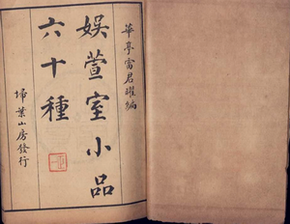 華亭雷君曜編
娛萱室小品
六十種
掃葉山房發行